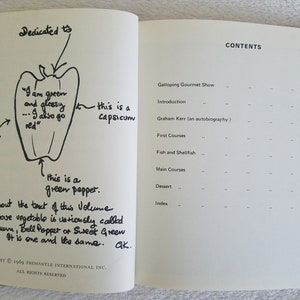 Dedicated to
"I am green
and glossy
... I also go
red"
this is a
capsicum
this is a
green pepper.
out the text of this Volume
ove vegetable is variously called
Bell Pepper or Sweet Green
It is one and the same.
G.K.
© 1969 FREMANTLE INTERNATIONAL INC.
ALL RIGHTS RESERVED
CONTENTS
Galloping Gourmet Show
Introduction
Graham Kerr (an autobiography)
First Courses
Fish and Shellfish
Main Courses
Dessert
Index